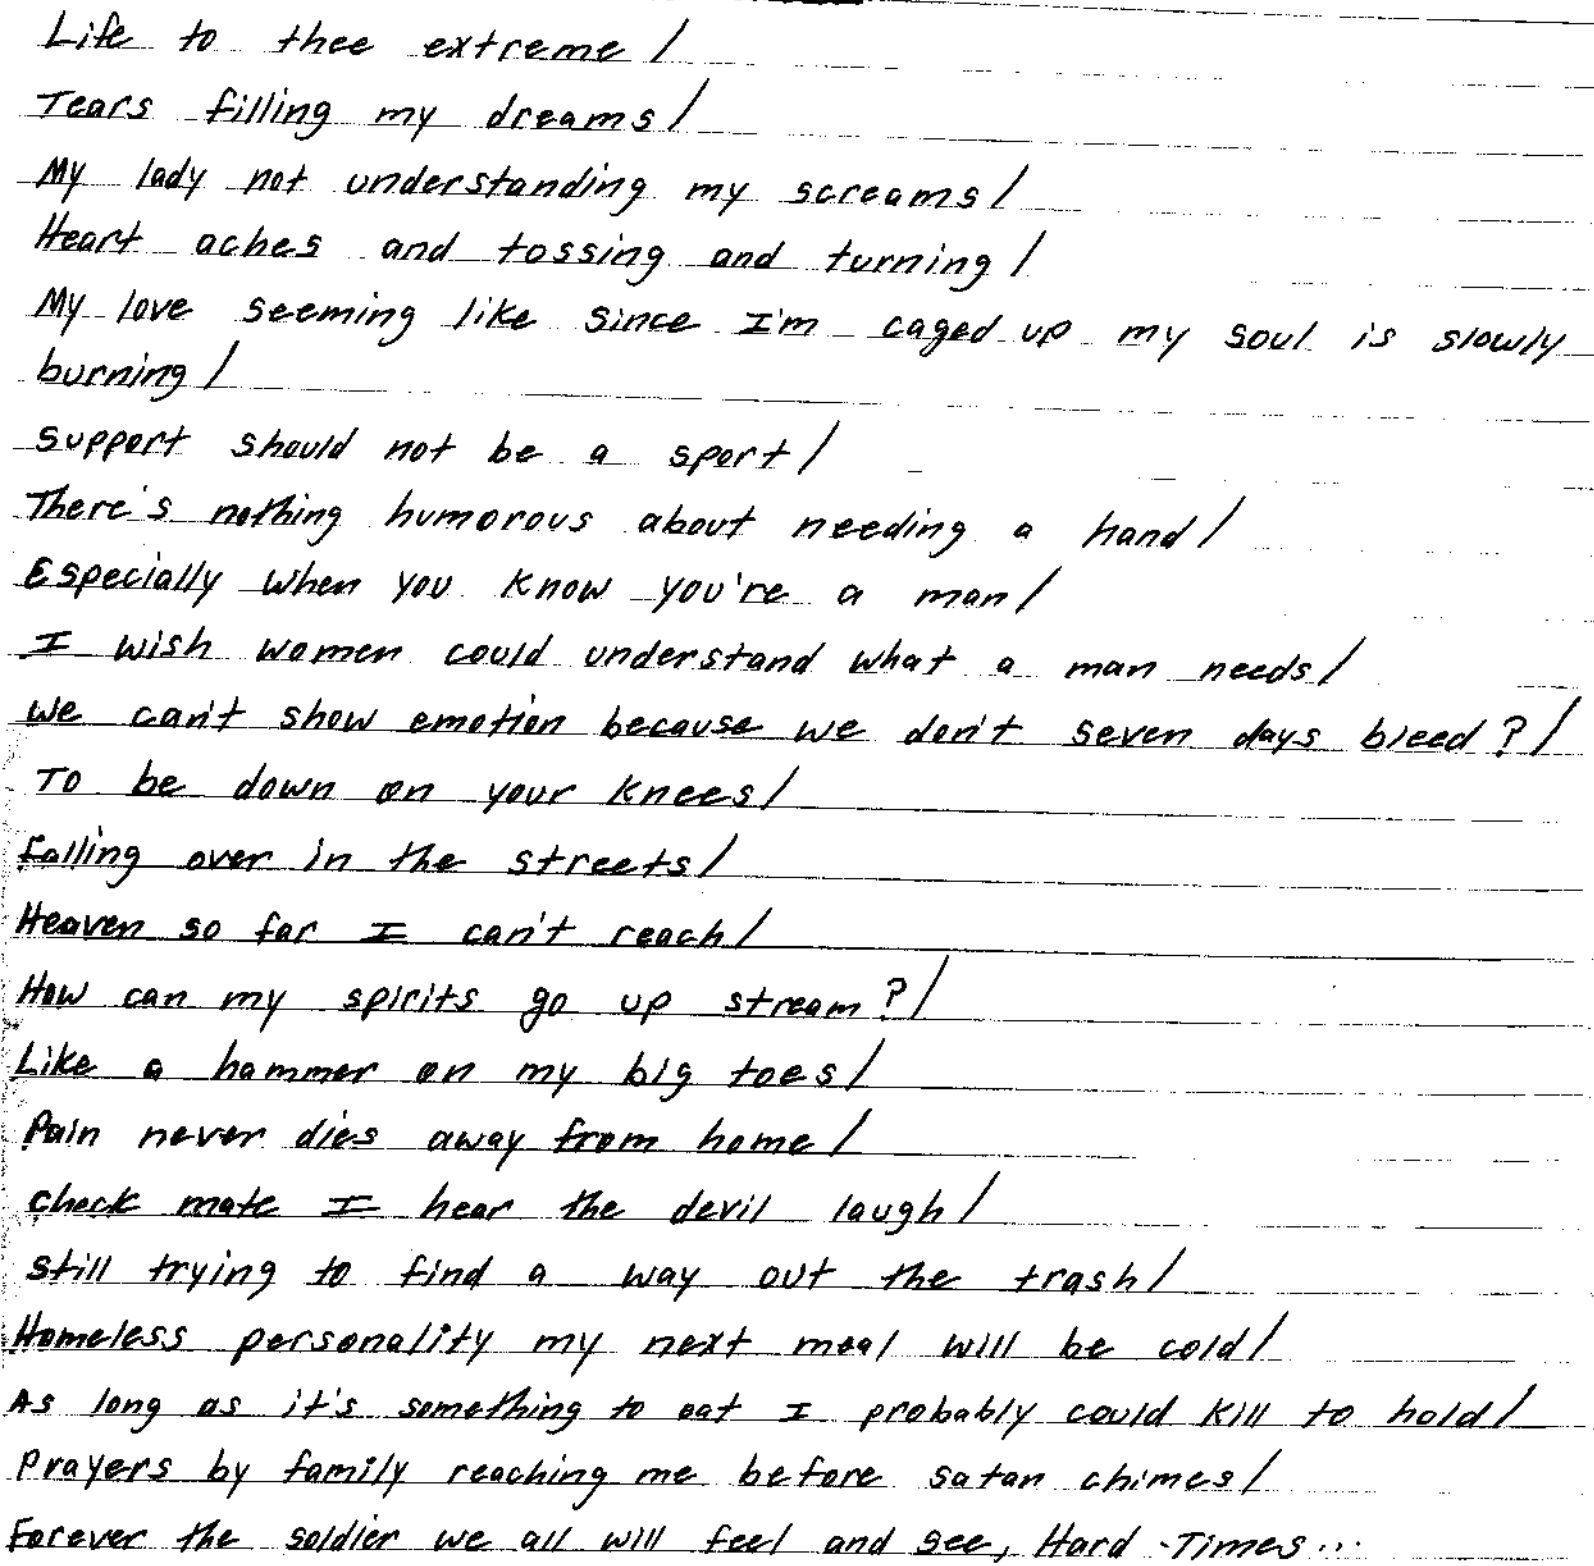 Life to thee extreme /
Tears filling my dreams /
My lady not understanding my screams /
Heart aches and tossing and turning /
My love seeming like since I'm caged up my soul is slowly
burning /
Support should not be a sport /
There's nothing humorous about needing a hand /
Especially when you know you're a man /
I wish women could understand what a man needs /
We can't show emotion because we don't seven days bleed? /
To be down on your knees /
falling over in the streets /
Heaven so far I can't reach /
How can my spirits go up stream? /
Like a hammer on my big toes /
Pain never dies away from home /
check mate I hear the devil laugh /
still trying to find a way out the trash /
Homeless personality my next meal will be cold /
As long as it's something to eat I probably could kill to hold /
Prayers by family reaching me before satan chimes /
Forever the soldier we all will feel and see, Hard -Times...